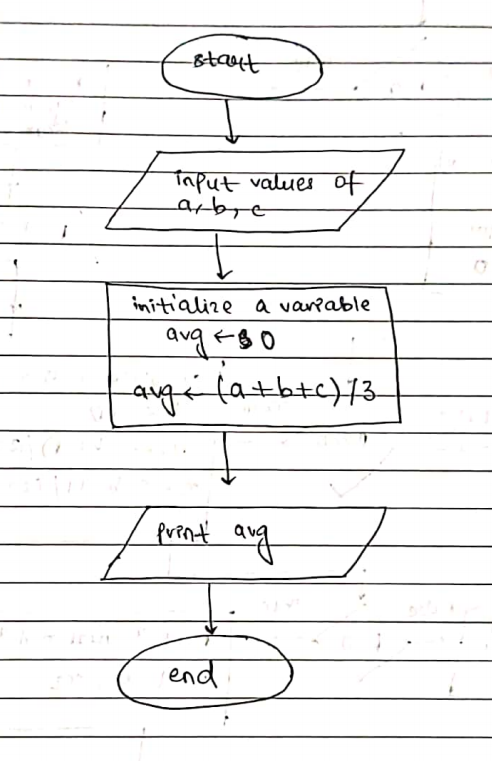 start
input values of
a, b, c
initialize a variable
avg ← 0
avg ← (a+b+c)/3
print avg
end